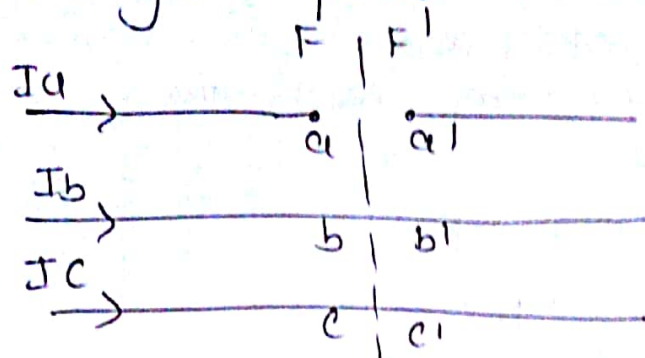 F | F'
Ia
a a'
Ib
b b'
Ic
c c'